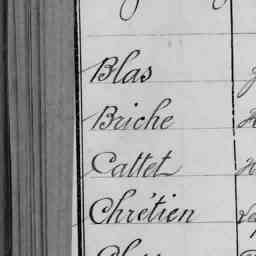 Blas
Briche
Cattet
Chrétien